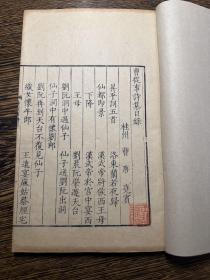 曹從事詩集目錄
桂州 曹唐 堯賓
昇平詞五首 洛東蘭若夜歸
仙都即景 漢武帝將候西王母
下降 漢武帝於宮中宴西
王母 劉晨阮肇遊天台
劉阮洞中遇仙子 仙子送劉阮出洞
仙子洞中有懷劉郎
劉阮再到天台不復見仙子
織女懷牽牛 王遠宴麻姑蔡經宅